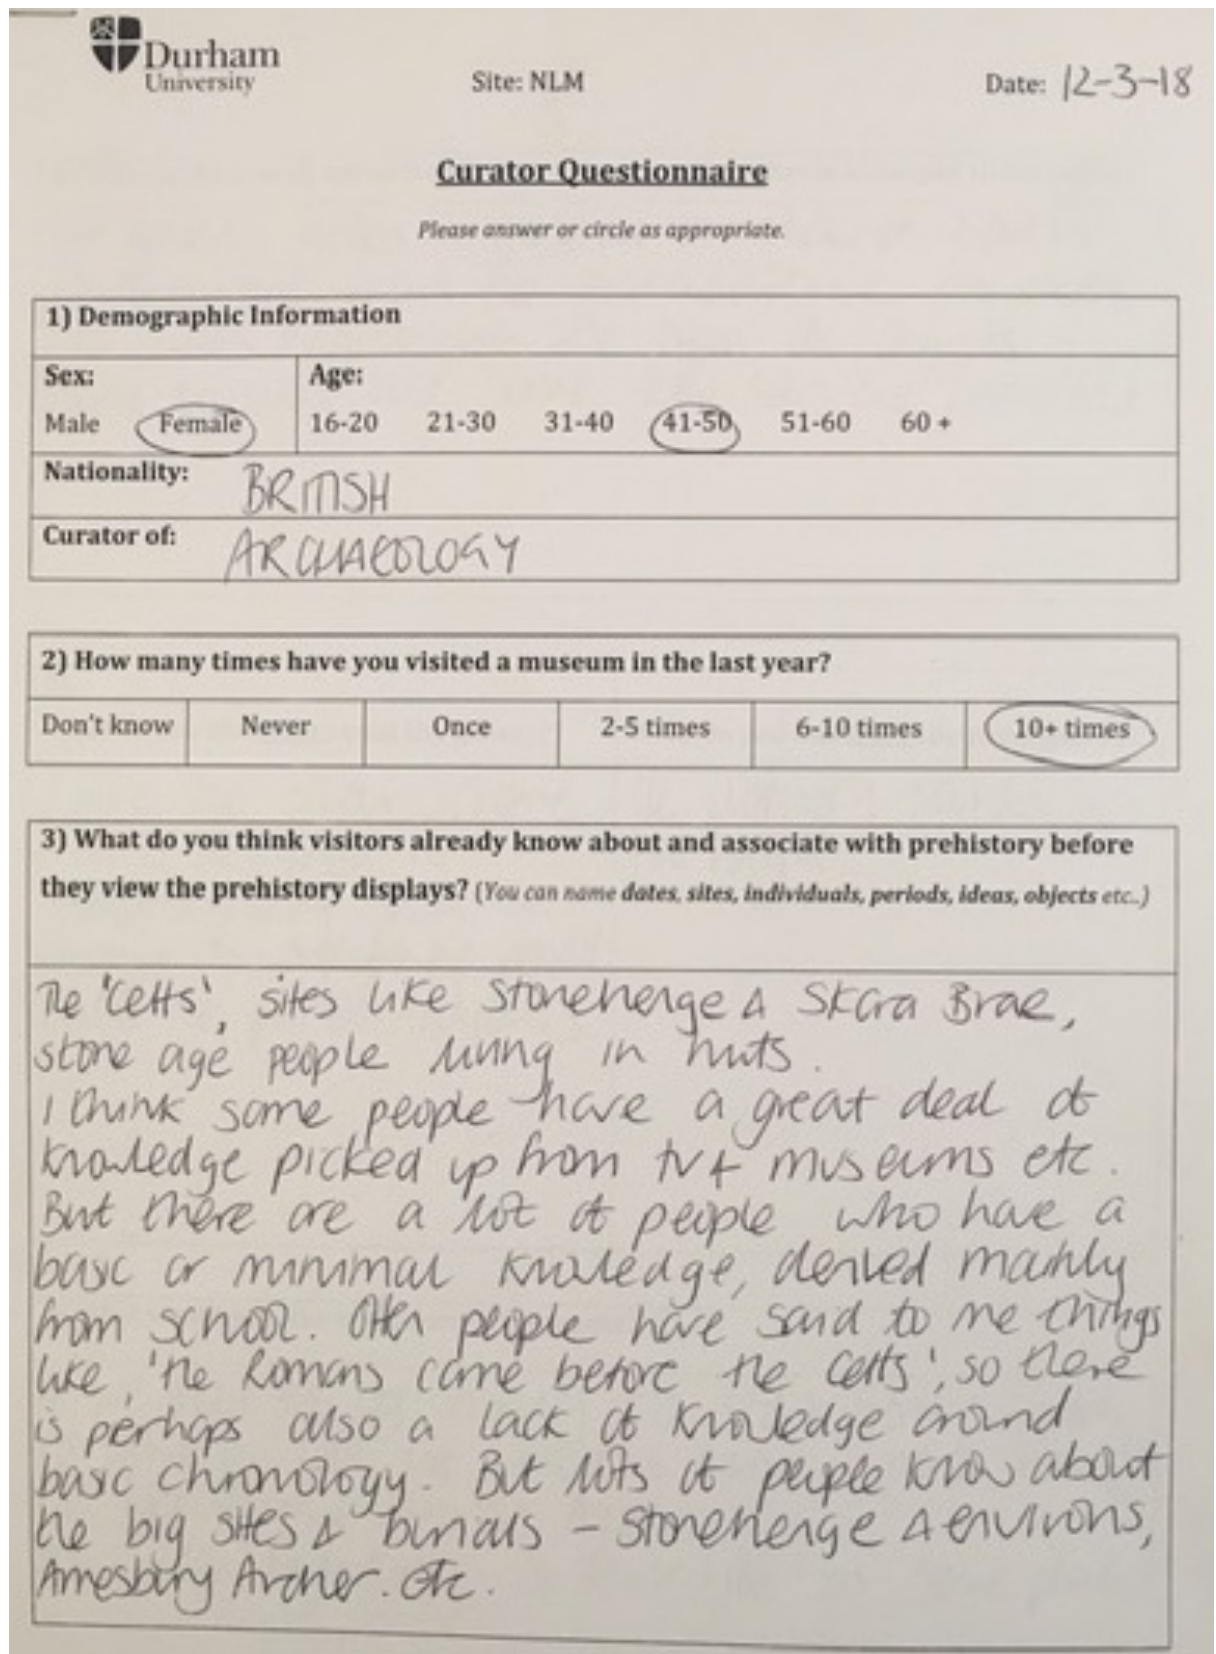 Durham
University
Site: NLM
Date: 12-3-18
Curator Questionnaire
Please answer or circle as appropriate.
1) Demographic Information
Sex:
Age:
Male Female 16-20 21-30 31-40 41-50 51-60 60 +
Nationality: BRITISH
Curator of: ARCHAEOLOGY
2) How many times have you visited a museum in the last year?
Don't know Never Once 2-5 times 6-10 times 10+ times
3) What do you think visitors already know about and associate with prehistory before
they view the prehistory displays? (You can name dates, sites, individuals, periods, ideas, objects etc..)
The 'Celts', sites like Stonehenge & Skara Brae,
stone age people living in huts.
I think some people have a great deal of
knowledge picked up from tv + museums etc.
But there are a lot of people who have a
basic or minimal knowledge, derived mainly
from school. Often people have said to me things
like, 'the Romans came before the Celts', so there
is perhaps also a lack of knowledge around
basic chronology. But lots of people know about
the big sites & burials - Stonehenge & environs,
Amesbury Archer. etc.